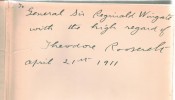 To
General Sir Reginald Wingate
with the high regard of
Theodore Roosevelt
April 21st 1911